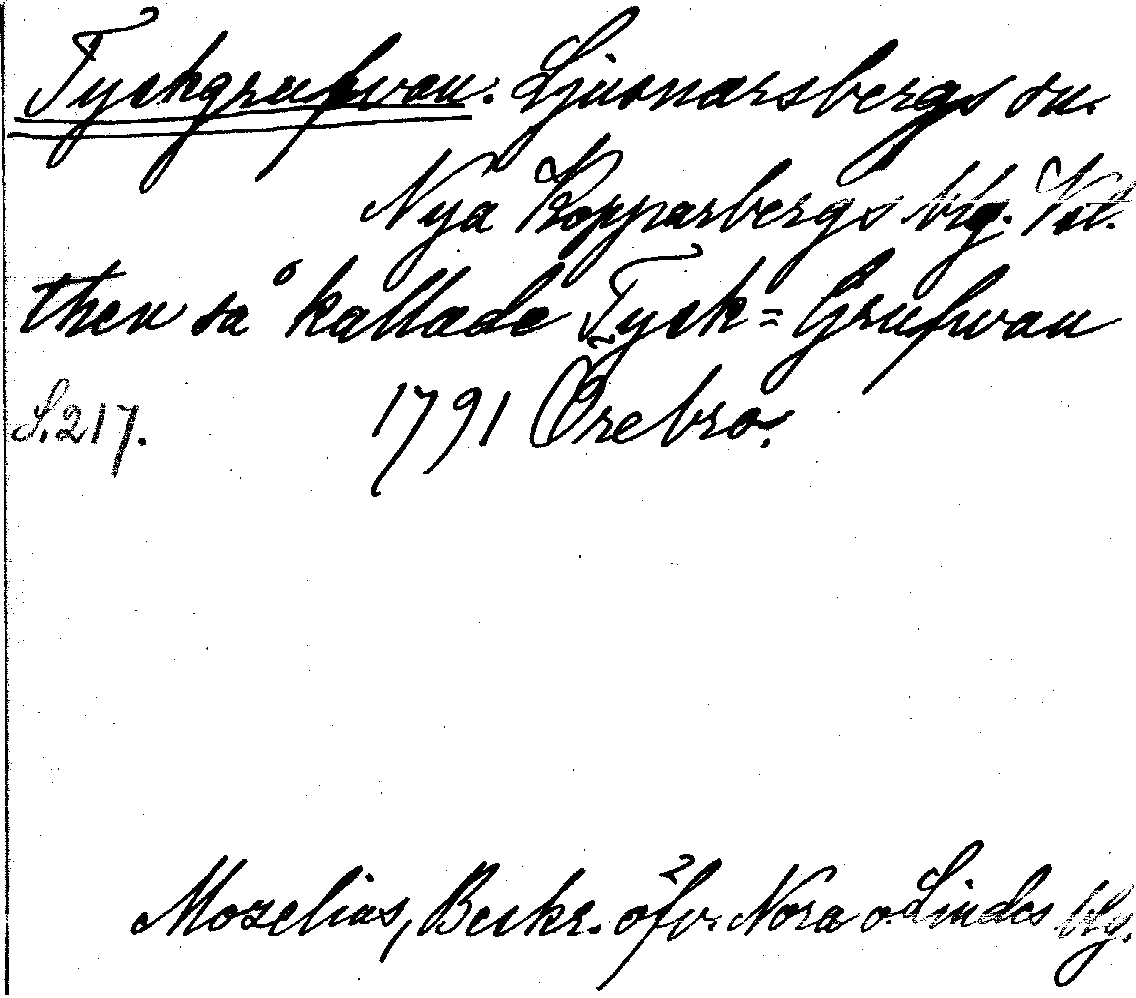 Tyskgrufvan. Ljusnarsbergs sn.
Nya Kopparbergs blg. Vstl.
then så kallade Tysk=Grufwan
S. 217. 1791 Örebro.
Moselius, Beskr. öfv. Nora o. Lindes blg.